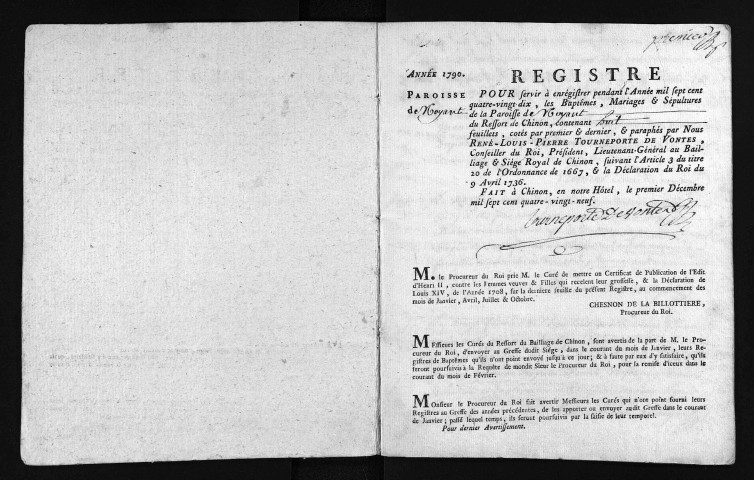 premier
ANNÉE 1790.
REGISTRE
PAROISSE
de Noyant
POUR servir à enrégistrer pendant l'Année mil sept cent
quatre-vingt-dix, les Baptêmes, Mariages & Sépultures
de la Paroisse de Noyant
du Ressort de Chinon, contenant huit
feuillets, cotés par premier & dernier, & paraphés par Nous
RENÉ-LOUIS-PIERRE TOURNEPORTE DE VONTES,
Conseiller du Roi, Président, Lieutenant-Général au Bail-
liage & Siége Royal de Chinon, suivant l'Article 3 du titre
20 de l'Ordonnance de 1667, & la Déclaration du Roi du
9 Avril 1736.
FAIT à Chinon, en notre Hôtel, le premier Décembre
mil sept cent quatre-vingt-neuf.
tourneporte De vontes
M. le Procureur du Roi prie M. le Curé de mettre un Certificat de Publication de l'Edit
d'Henri II, contre les Femmes veuves & Filles qui recelent leur grossesse, & la Déclaration de
Louis XIV, de l'Année 1708, sur la derniere feuille du présent Registre, au commencement des
mois de Janvier, Avril, Juillet & Octobre.
CHESNON DE LA BILLOTTIERE,
Procureur du Roi.
MEssieurs les Curés du Ressort du Bailliage de Chinon, sont avertis de la part de M. le Pro-
cureur du Roi, d'envoyer au Greffe dudit Siége, dans le courant du mois de Janvier, leurs Re-
gistres de Baptêmes qu'ils n'ont point envoyé jusqu'à ce jour; & à faute par eux d'y satisfaire, qu'ils
seront poursuivis à la Requête de mondit Sieur le Procureur du Roi, pour la remise d'iceux dans le
courant du mois de Février.
MOnsieur le Procureur du Roi fait avertir Messieurs les Curés qui n'ont point fourni leurs
Registres au Greffe des années précédentes, de les apporter ou envoyer audit Greffe dans le courant
de Janvier; passé lequel temps, ils seront poursuivis par la saisie de leur temporel.
Pour dernier Avertissement.